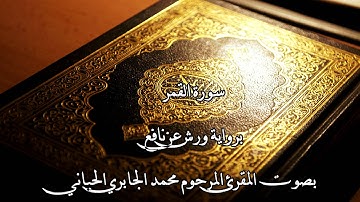 سورة القمر
برواية ورش عن نافع
بصوت المقرئ المرحوم محمد الجابري الحياني